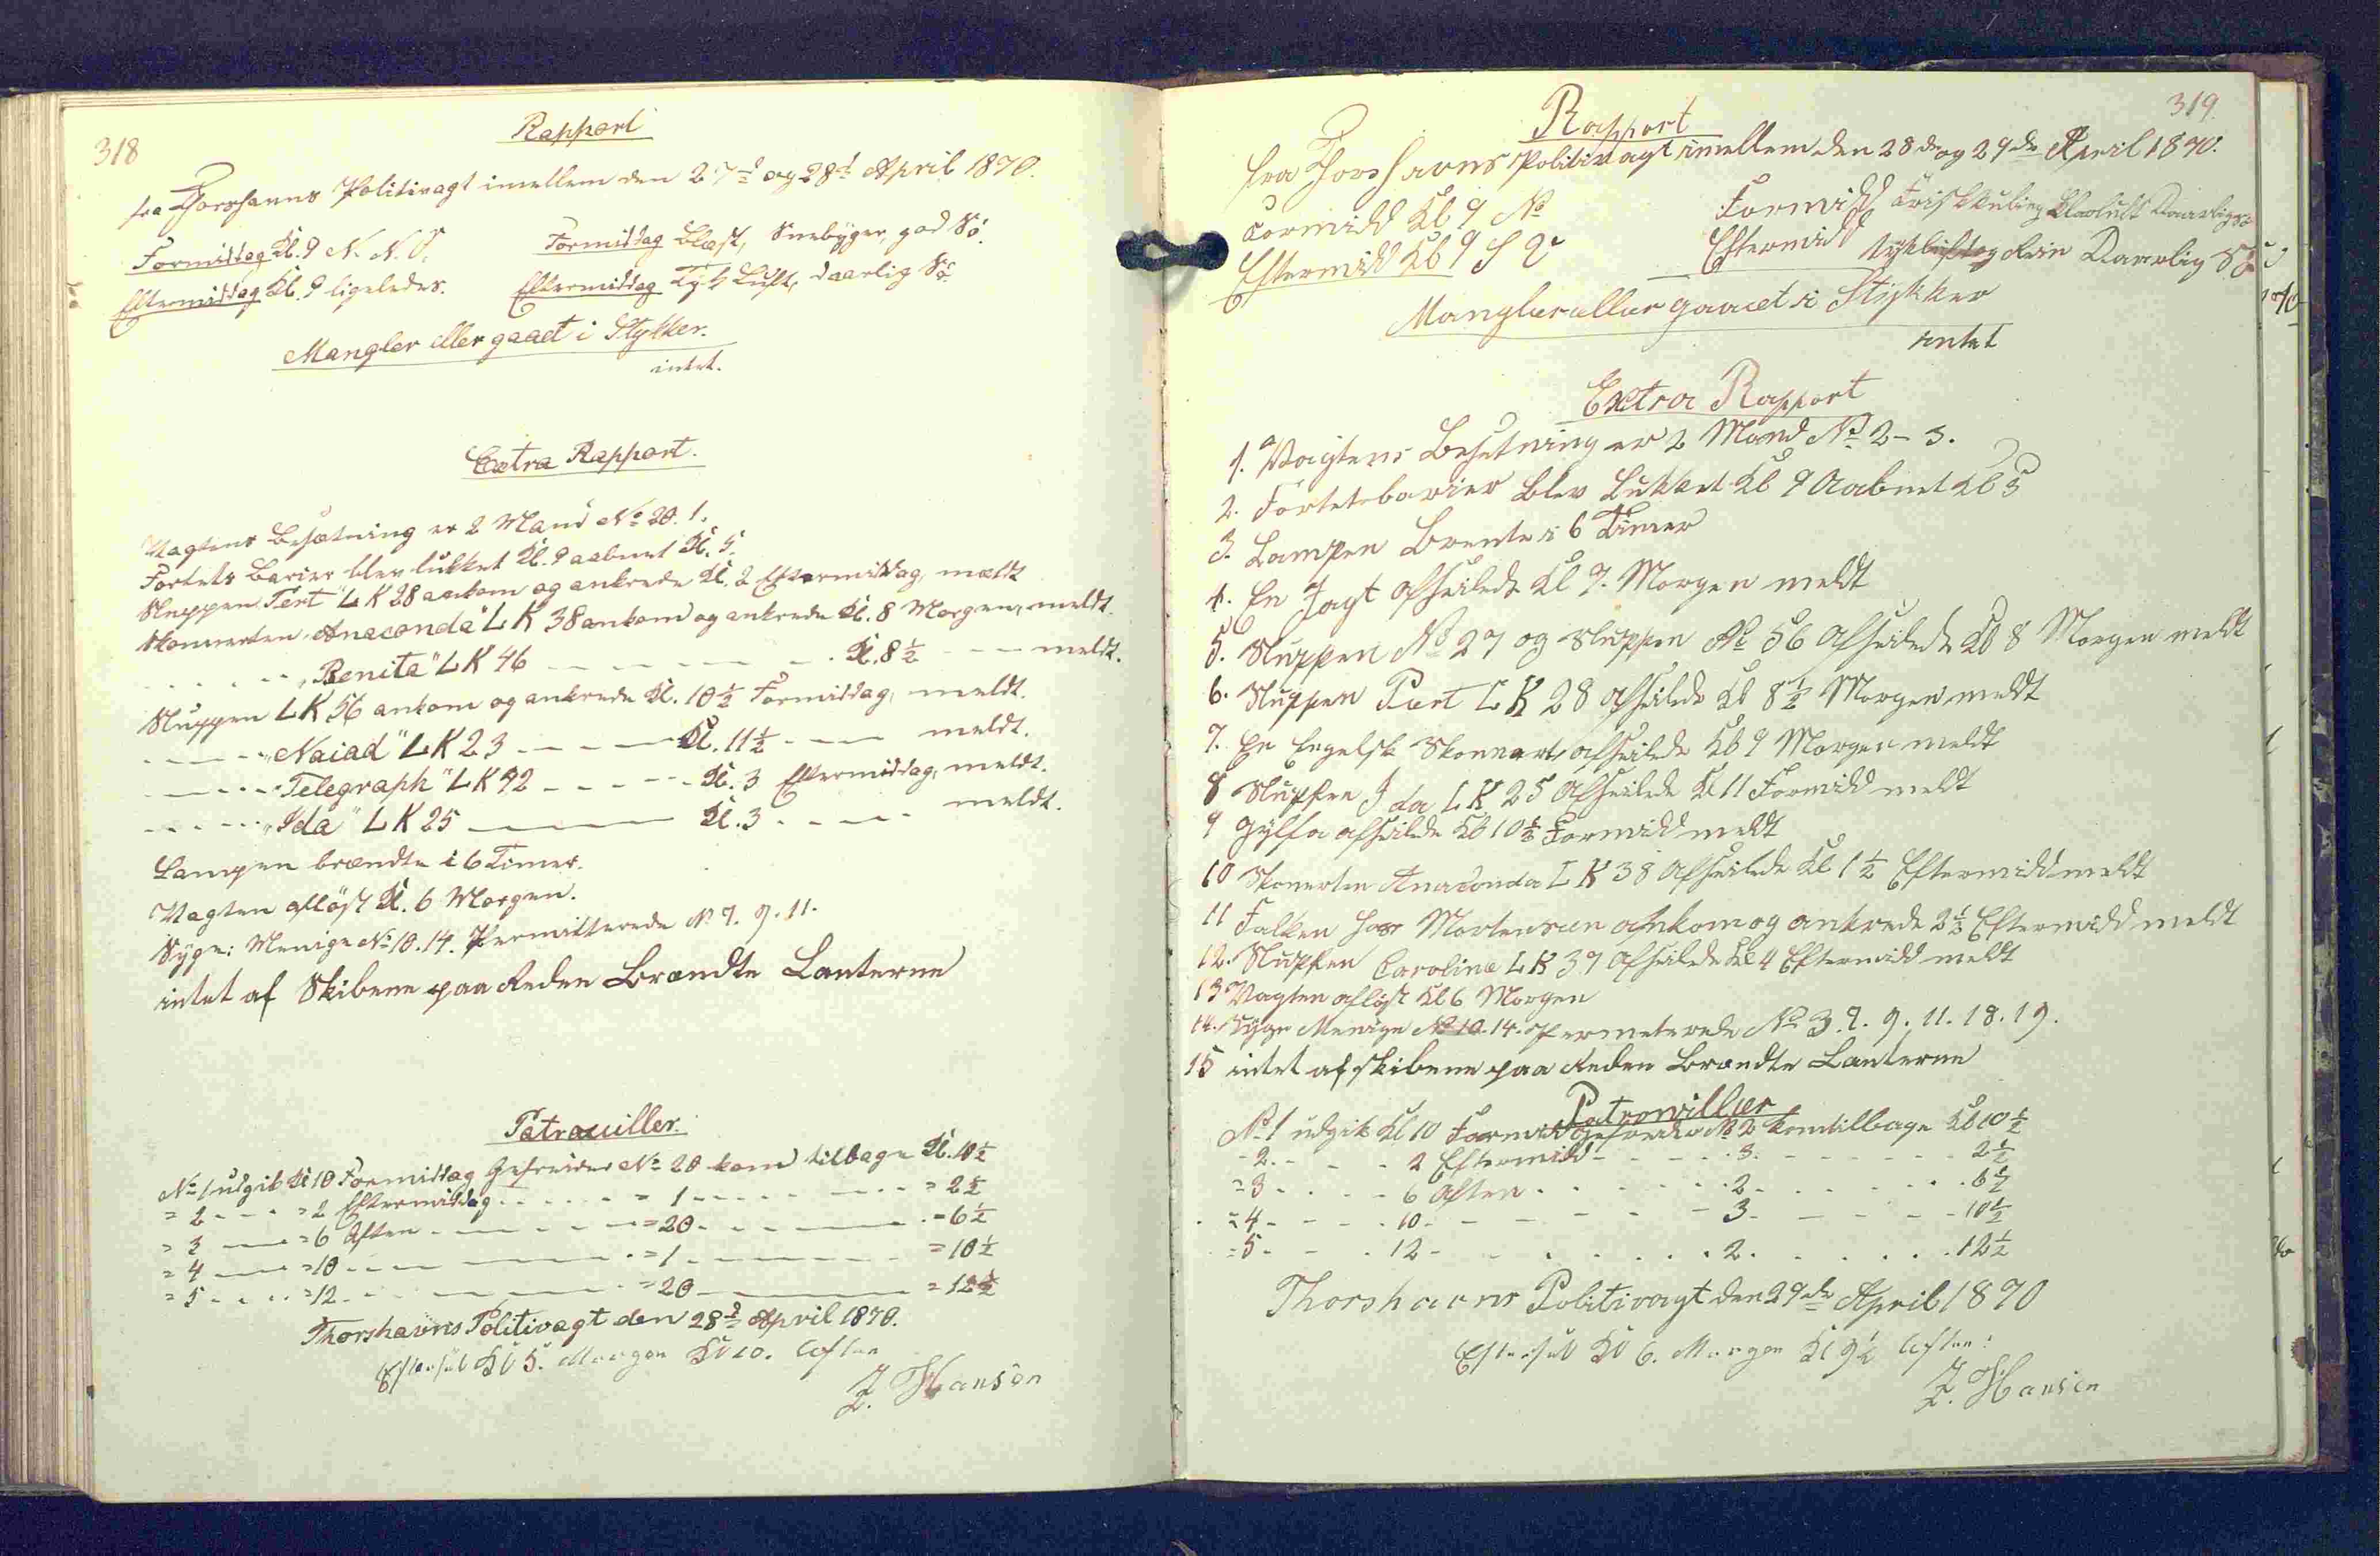 318
Rapport
fra Thorshavns Politivagt imellem den 27d og 28d April 1890.
Formiddag Kl. 9 N. N. O.
Formiddag Blæst, Snebyger, god Sø.
Eftermiddag Kl. 9 ligeledes.
Eftermiddag Tyk Luft, daarlig Sø
Mangler eller gaaet i Stykker.
intet.
Extra Rapport.
Vagtens Besætning er 2 Mand No 20. 1.
Fortets Barier blev lukket Kl. 9 aabnet Kl. 5.
Sluppen "Tert" LK 28 ankom og ankrede Kl. 2 Eftermiddag, meldt
Skonnerten "Anaconda" LK 38 ankom og ankrede Kl. 8 Morgen, meldt.
- - - - - "Benita" LK 46 - - - - - - Kl. 8½ - - - meldt.
Sluppen LK 56 ankom og ankrede Kl. 10½ Formiddag, meldt.
- - - - "Naiad" LK 23 - - - - Kl. 11½ - - - meldt.
- - - - "Telegraph" LK 92 - - - - - Kl. 3 Eftermiddag, meldt.
- - - - - "Ida" LK 25 - - - - Kl. 3 - - - - meldt.
Lampen brændte i 6 Timer.
Vagten afløst Kl. 6 Morgen.
Syge: Menige No 10. 14. Permitterede No 7. 9. 11.
intet af Skibene paa Reden Brændte Lanterne
Patrouiller.
No 1 udgik Kl 10 Formiddag Gefreider No 20 kom tilbage Kl. 10½
= 2 - - - = 2 Eftermiddag - - - - - = 1 - - - - - - = 2½
= 3 - - - = 6 Aften - - - - - = 20 - - - - - = 6½
= 4 - - - = 10 - - - - - = 1 - - - - - = 10½
= 5 - - - = 12 - - - - - = 20 - - - - - = 12½
Thorshavns Politivagt den 28d April 1890.
Eftersét Kl 5. Morgen Kl 10. Aften
Z. Hansen
319.
Rapport
fra Thorshavns Politivagt imellem den 28de og 29de April 1890.
Formidd Kl 9 No
Formidd Frisk Kuling Daarlig Sø
Eftermidd Kl 9 S V
Eftermidd tykluft og Rein Daarlig Sø
Mangler eller gaaet i Stykker
intet
Extra Rapport
1. Vagtens Besetning er 2 Mand No 2 - 3.
2. Fortetsbarier blev Lukket Kl 9 Aabnet Kl 5
3. Lampen Brente i 6 Timer
4. En Jagt afseilede Kl 7. Morgen meldt
5. Sluppen No 27 og Sluppen No 56 afseilede Kl 8 Morgen meldt
6. Sluppen Tert LK 28 afseilede Kl 8½ Morgen meldt
7. En Engelsk Skonnert afseilede Kl 9 Morgen meldt
8 Sluppen Ida LK 25 Afseilede Kl 11 Formidd meldt
9 Gylfa afseilede Kl 10½ Formidd meldt
10 Skonerten Anaconda LK 38 afseilede Kl 1½ Eftermidd meldt
11 Falken Mortensen ankom og ankrede 2½ Eftermidd meldt
12. Sluppen Caroline LK 39 afseilede Kl 4 Eftermidd meldt
13 Vagten afløst Kl 6 Morgen
14. Syge Menige No 10. 14. Permeterede No 3. 7. 9. 11. 18. 19.
15 intet af skibene paa Reden Brændte Lanterne
Patrouiller
No 1 udgik Kl 10 Formidd Gefreider No 2 kom tilbage Kl 10½
- 2. - - - - 2 Eftermidd - - - - - 3. - - - - - - 2½
= 3 - - - - 6 Aften - - - - - 2 - - - - - 6½
= 4 - - - - 10 - - - - - - 3 - - - - - 10½
= 5 - - - 12 - - - - - - 2 - - - - - 12½
Thorshavns Politivagt den 29de April 1890
Eftersét Kl 6. Morgen Kl 9½ Aften:
Z. Hansen